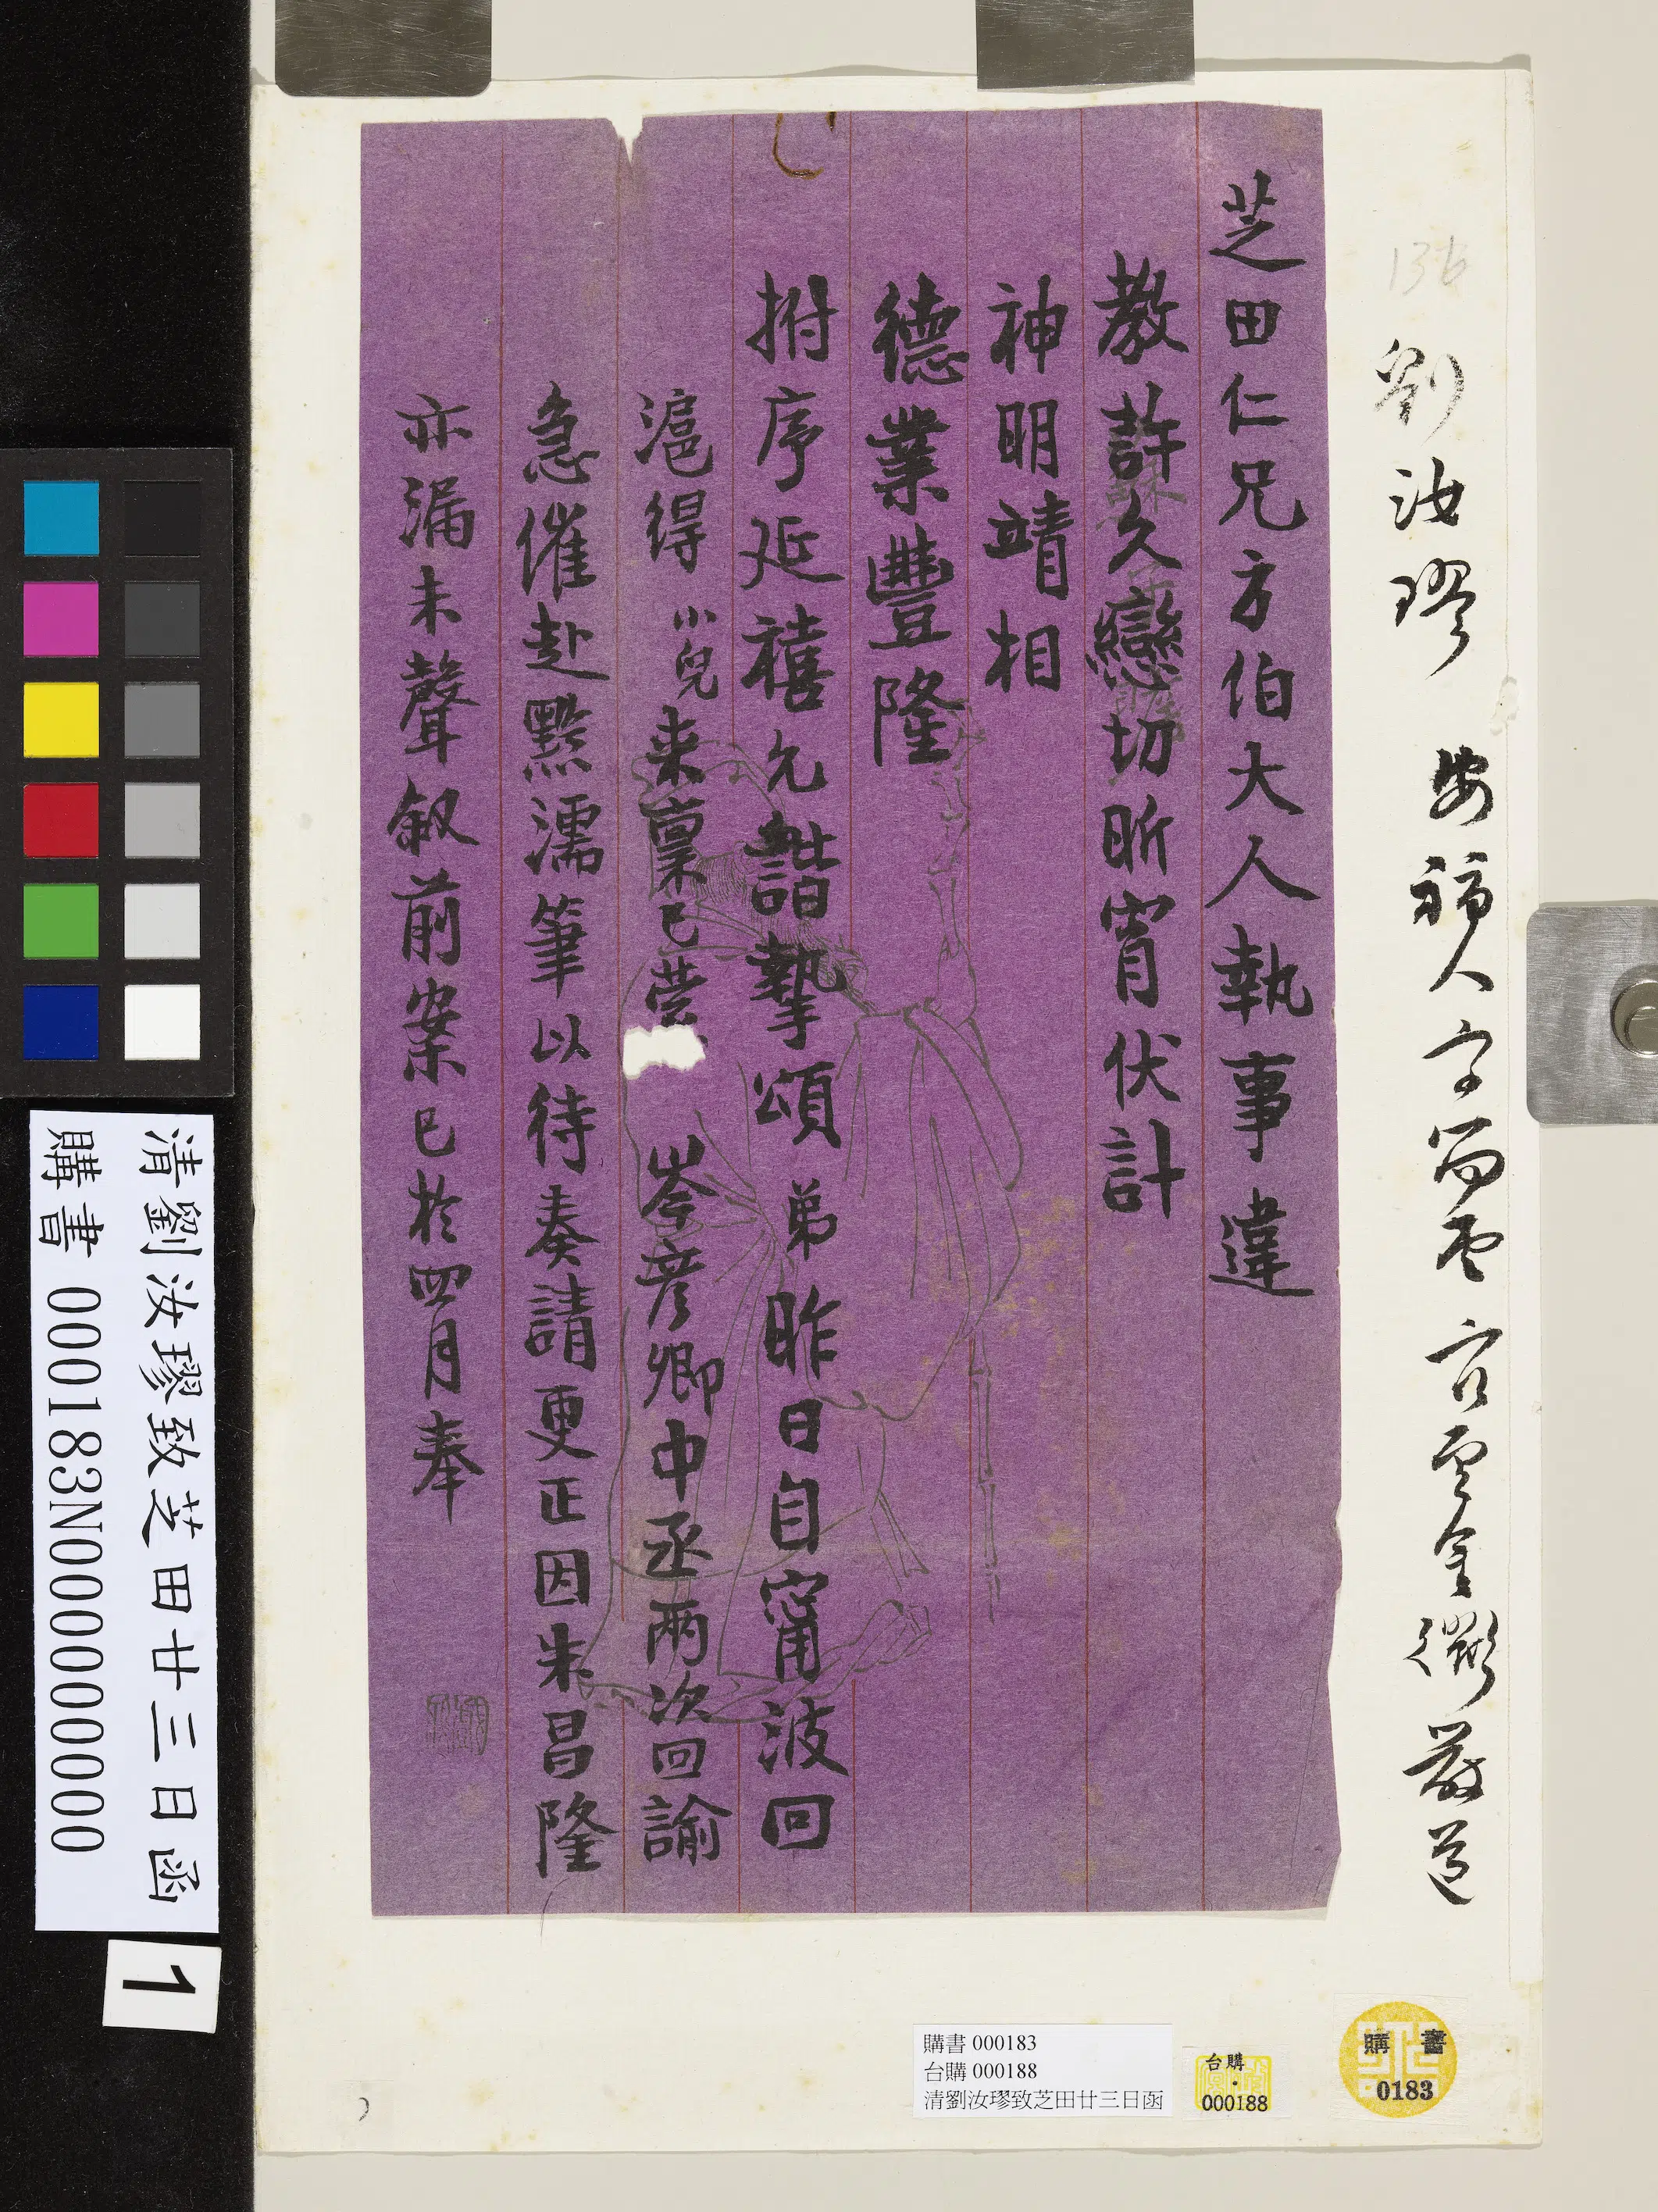 136
劉汝璆 安福人字笏 官至金衢嚴道
芝田仁兄方伯大人執事違
教許久戀切昕宵伏計
神明靖相
德業豐隆
拊序延禧允諧摯頌弟昨日自甯波回
滬得小兒来稟已蒙岑彦卿中丞兩次回諭
急催赴黔濡筆以待奏請更正因朱昌隆
亦漏未聲叙前案已於四月奉
清劉汝璆致芝田廿三日函
購書 000183N000000000
1
購書 000183
台購 000188
清劉汝璆致芝田廿三日函
台購
000188
購書
0183